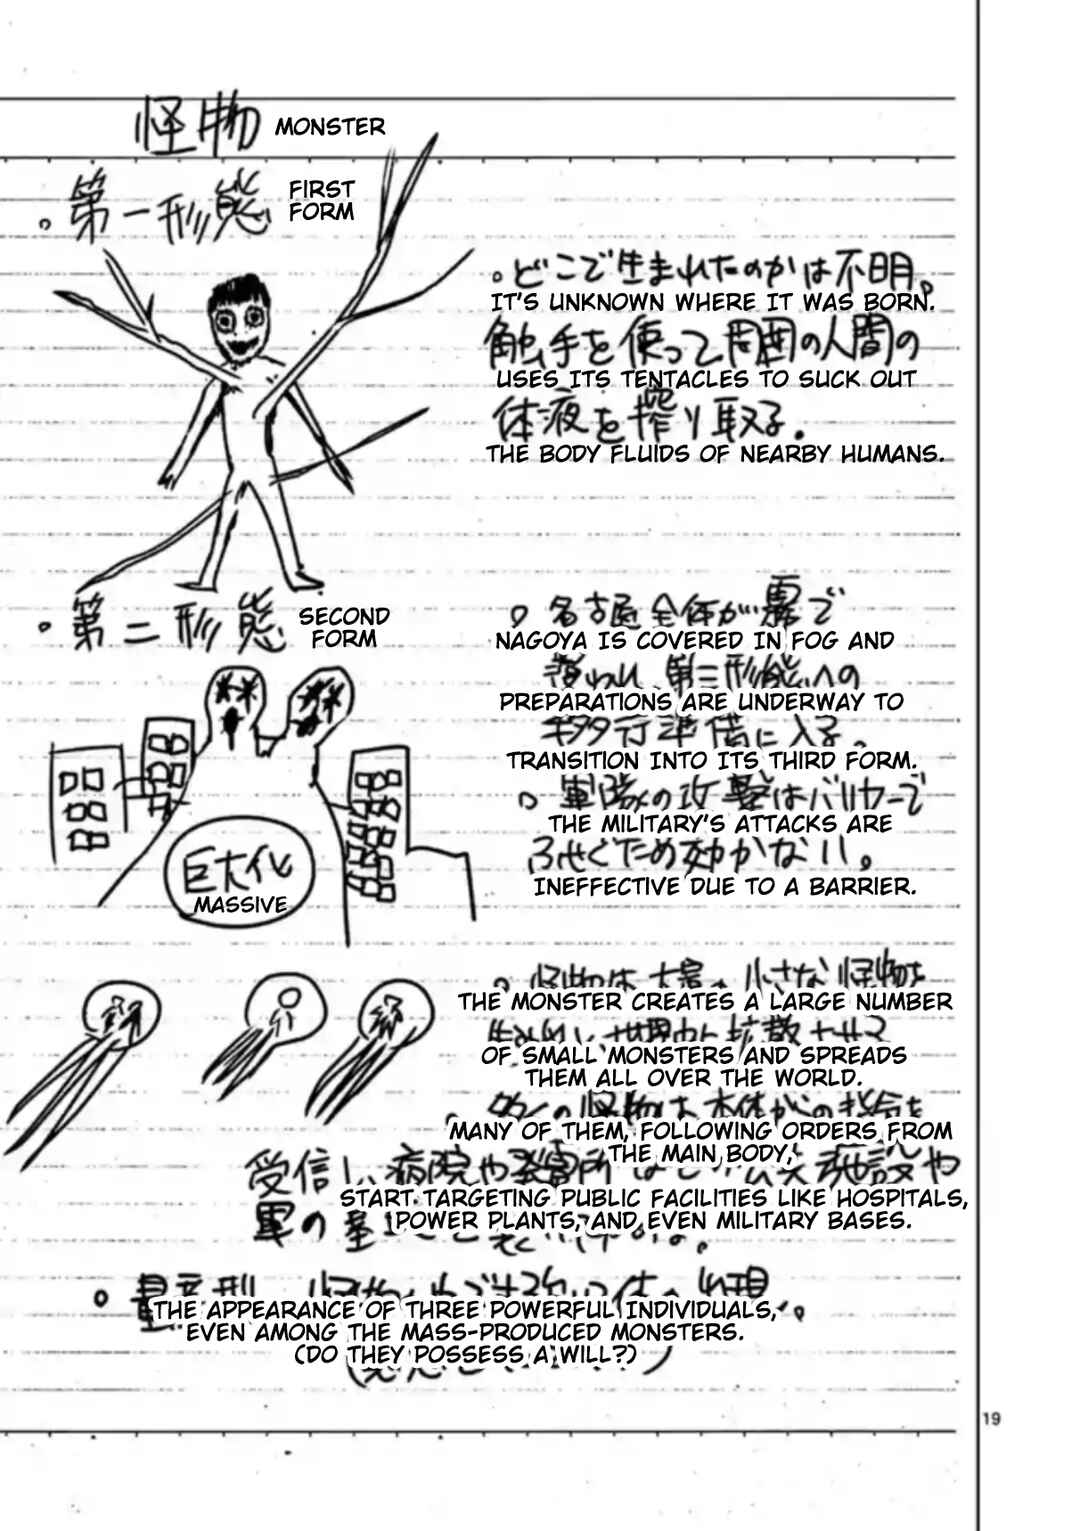 怪物 MONSTER
。第一形態 FIRST
FORM
。どこで生まれたのかは不明。
IT'S UNKNOWN WHERE IT WAS BORN.
触手を使って周囲の人間の
USES ITS TENTACLES TO SUCK OUT
体液を搾り取る。
THE BODY FLUIDS OF NEARBY HUMANS.
。第二形態 SECOND
FORM
巨大化
MASSIVE
。名古屋全体が霧で
NAGOYA IS COVERED IN FOG AND
覆われ、第三形態への
PREPARATIONS ARE UNDERWAY TO
移行準備に入る。
TRANSITION INTO ITS THIRD FORM.
。軍隊の攻撃はバリヤーで
THE MILITARY'S ATTACKS ARE
ふせぐため効かない。
INEFFECTIVE DUE TO A BARRIER.
。怪物は大量の小さな怪物を
THE MONSTER CREATES A LARGE NUMBER
OF SMALL MONSTERS AND SPREADS
THEM ALL OVER THE WORLD.
MANY OF THEM, FOLLOWING ORDERS FROM
THE MAIN BODY,
受信し、病院や発電所 施設や
START TARGETING PUBLIC FACILITIES LIKE HOSPITALS,
軍の
POWER PLANTS, AND EVEN MILITARY BASES.
THE APPEARANCE OF THREE POWERFUL INDIVIDUALS,
EVEN AMONG THE MASS-PRODUCED MONSTERS.
(DO THEY POSSESS A WILL?)
19